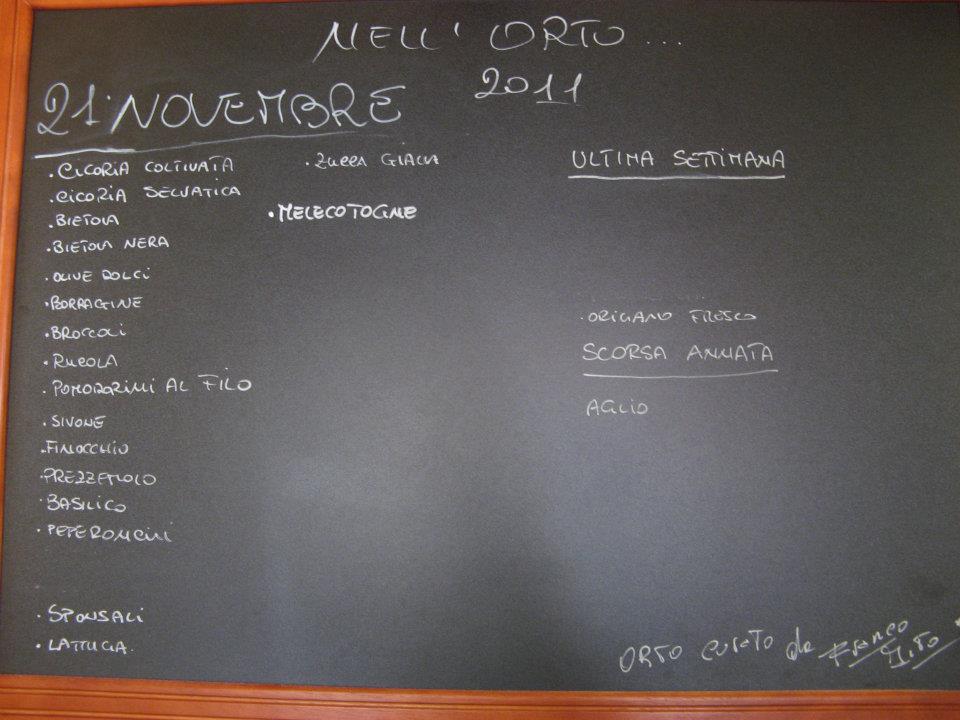 NELL' ORTO...
2011
21 NOVEMBRE
• CICORIA COLTIVATA
• CICORIA SELVATICA
• BIETOLA
• BIETOLA NERA
• OLIVE DOLCI
• BORRAGINE
• BROCCOLI
• RUCOLA
• POMODORINI AL FILO
• SIVONE
• FINOCCHIO
• PREZZEMOLO
• BASILICO
• PEPERONCINI
• SPONSALI
• LATTUGA
• ZUCCA GIALLA
• MELECOTOGNE
ULTIMA SETTIMANA
• ORIGANO FRESCO
SCORSA ANNATA
AGLIO
ORTO CURATO da FRANCO